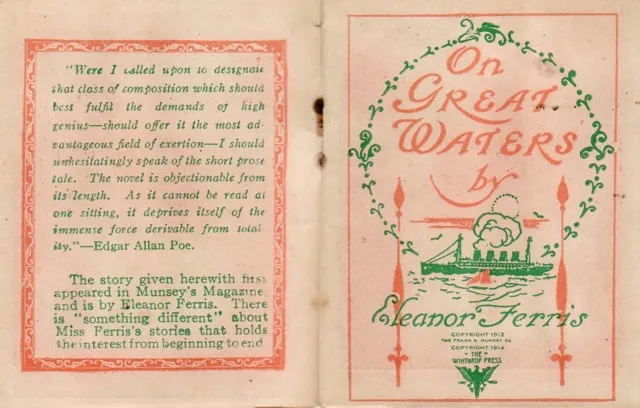 "Were I called upon to designate
that class of composition which should
best fulfil the demands of high
genius—should offer it the most ad-
vantageous field of exertion—I should
unhesitatingly speak of the short prose
tale. The novel is objectionable from
its length. As it cannot be read at
one sitting, it deprives itself of the
immense force derivable from total-
ity."—Edgar Allan Poe.
The story given herewith first
appeared in Munsey's Magazine,
and is by Eleanor Ferris. There
is "something different" about
Miss Ferris's stories that holds
the interest from beginning to end
On
GREAT
WATERS
by
Eleanor Ferris
COPYRIGHT 1912
THE FRANK A. MUNSEY CO
COPYRIGHT 1914
THE
WINTHROP PRESS